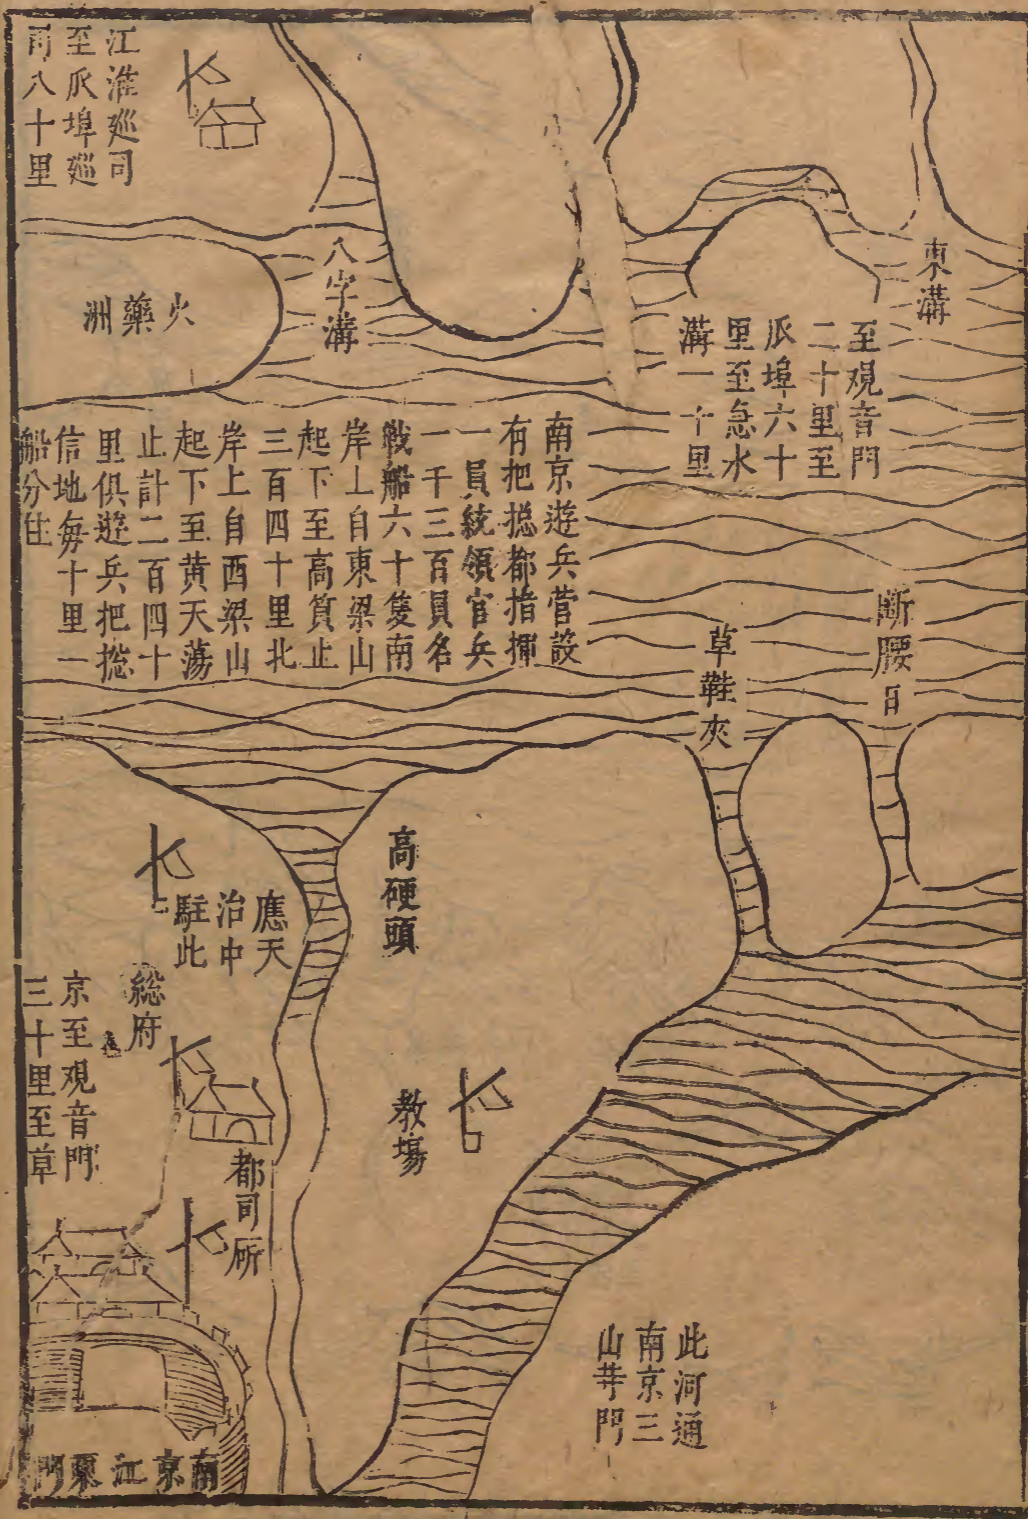 東溝
至观音門
二十里至
瓜埠六十
里至急水
溝一十里
八字溝
火藥洲
江淮廵司
至瓜埠廵
司八十里
南京遊兵营設
有把捴都指揮
一員統領官兵
一千三百員名
戰船六十隻南
岸上自東梁山
起下至高資止
三百四十里北
岸上自西梁山
起下至黄天蕩
止計二百四十
里俱遊兵把捴
信地每十里一
船分住
斷腰
草鞋夾
高硬頭
應天
治中
駐此
総府
京至观音門
三十里至草
教塲
都司𠩄
此河通
南京三
山等門
南京江東門